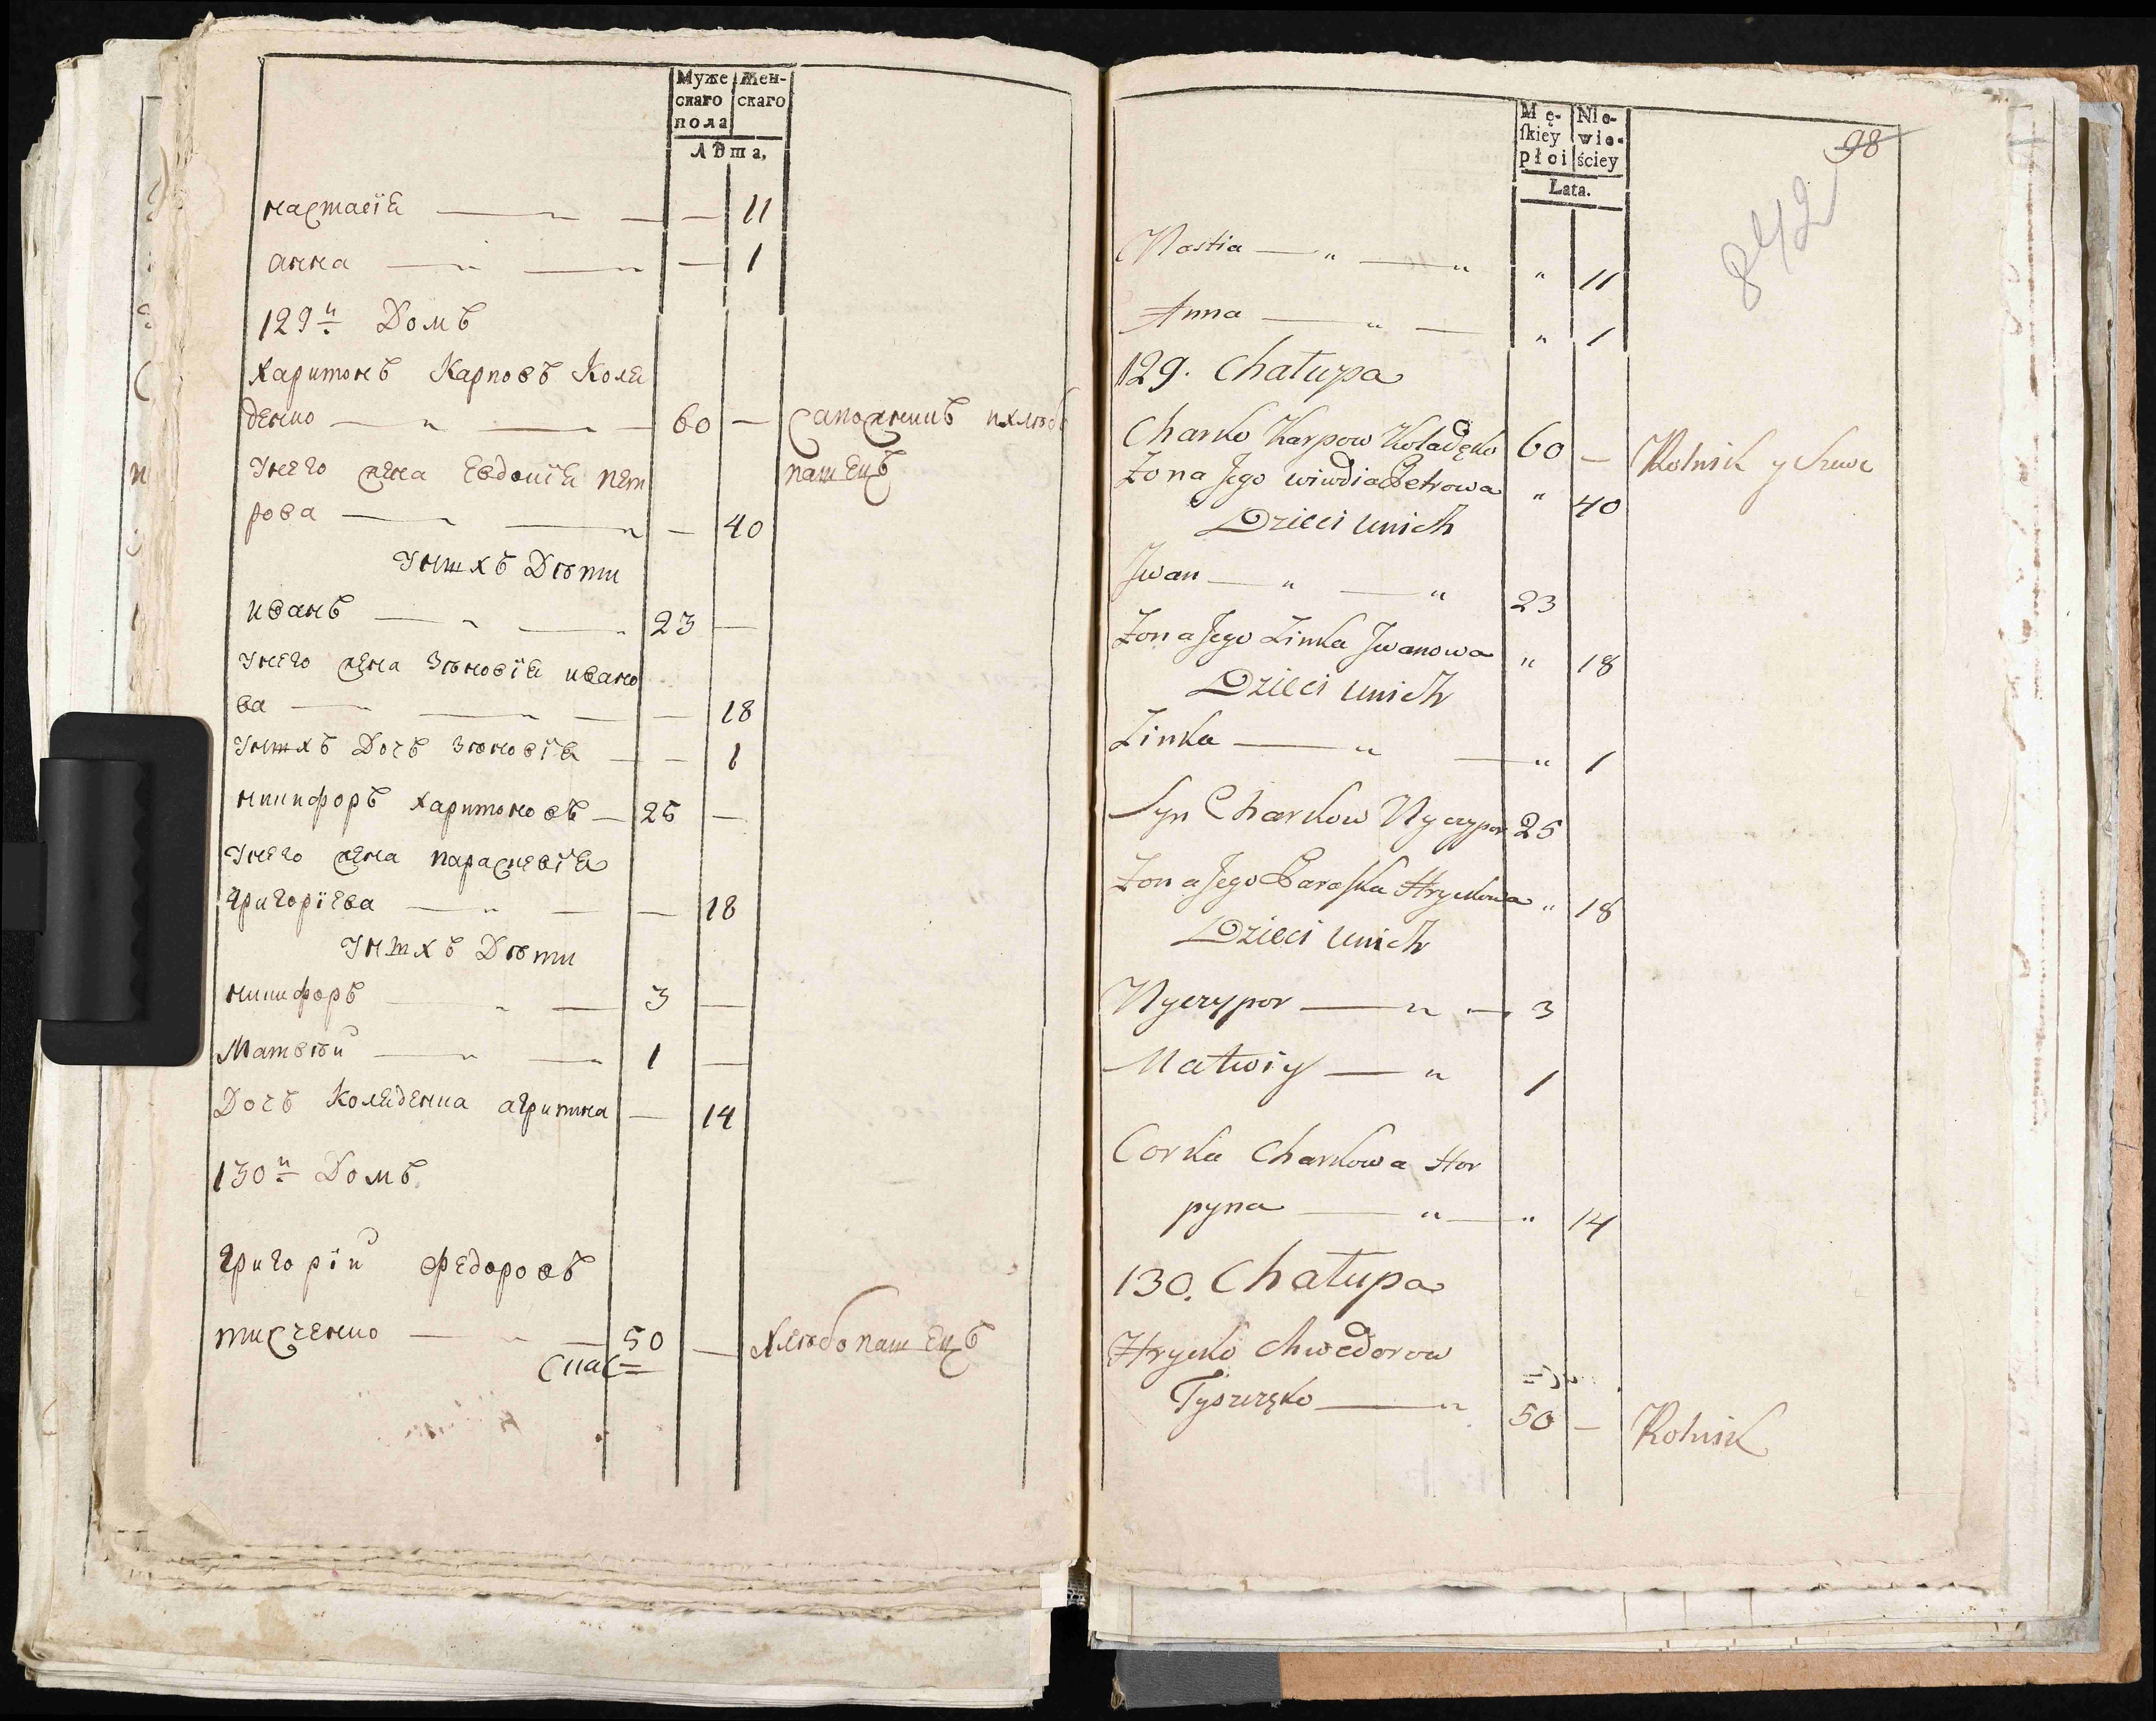 Муже Жен-
скаго скаго
пола
Лѣта,
настасїя — — — 11
анна — — — 1
129й Домъ
харитонъ Карповъ Коля
денко — — 60 — сапожникъ ихлѣбо
унего жена Евдокїя пет пашецъ
рова — — — 40
унихъ Дѣти
иванъ — — 23 —
унего жена Зѣновїя ивано
ва — — — 18
унихъ Дочь зѣновїя — — 1
никифоръ харитоновъ — 25 —
унего жена параскевїя
григорїева — — — 18
унихъ Дѣти
никифоръ — — 3 —
Матвѣй — — 1 —
Дочь Коляденка агрипина — 14
130й Домъ
григорїй федоровъ
тисченко — — 50 — хлѣбопашецъ
спас=
98
842
Mę- Nie-
skiey wie-
płci ściey
Lata.
Nastia — „ — „ „ 11
Anna — „ — „ 1
129. Chałupa
Charko Karpow Koladęko 60 — Rolnik y Szewc
Żona Jego wiwdia Petrowa „ 40
Dzieci unich
Jwan — „ — „ 23
Żona Jego Zinka Jwanowa „ 18
Dzieci unich
Zinka — „ — „ 1
Syn Charkow Nyczypor 25
Żona Jego Paraska Hryckowa „ 18
Dzieci unich
Nyczypor — „ — 3
Matwiy — „ 1
Corka Charkowa Hor
pyna — „ — „ 14
130. Chałupa
Hrycko Chwedorow
Tyszczęko — „ 50 — Rolnik